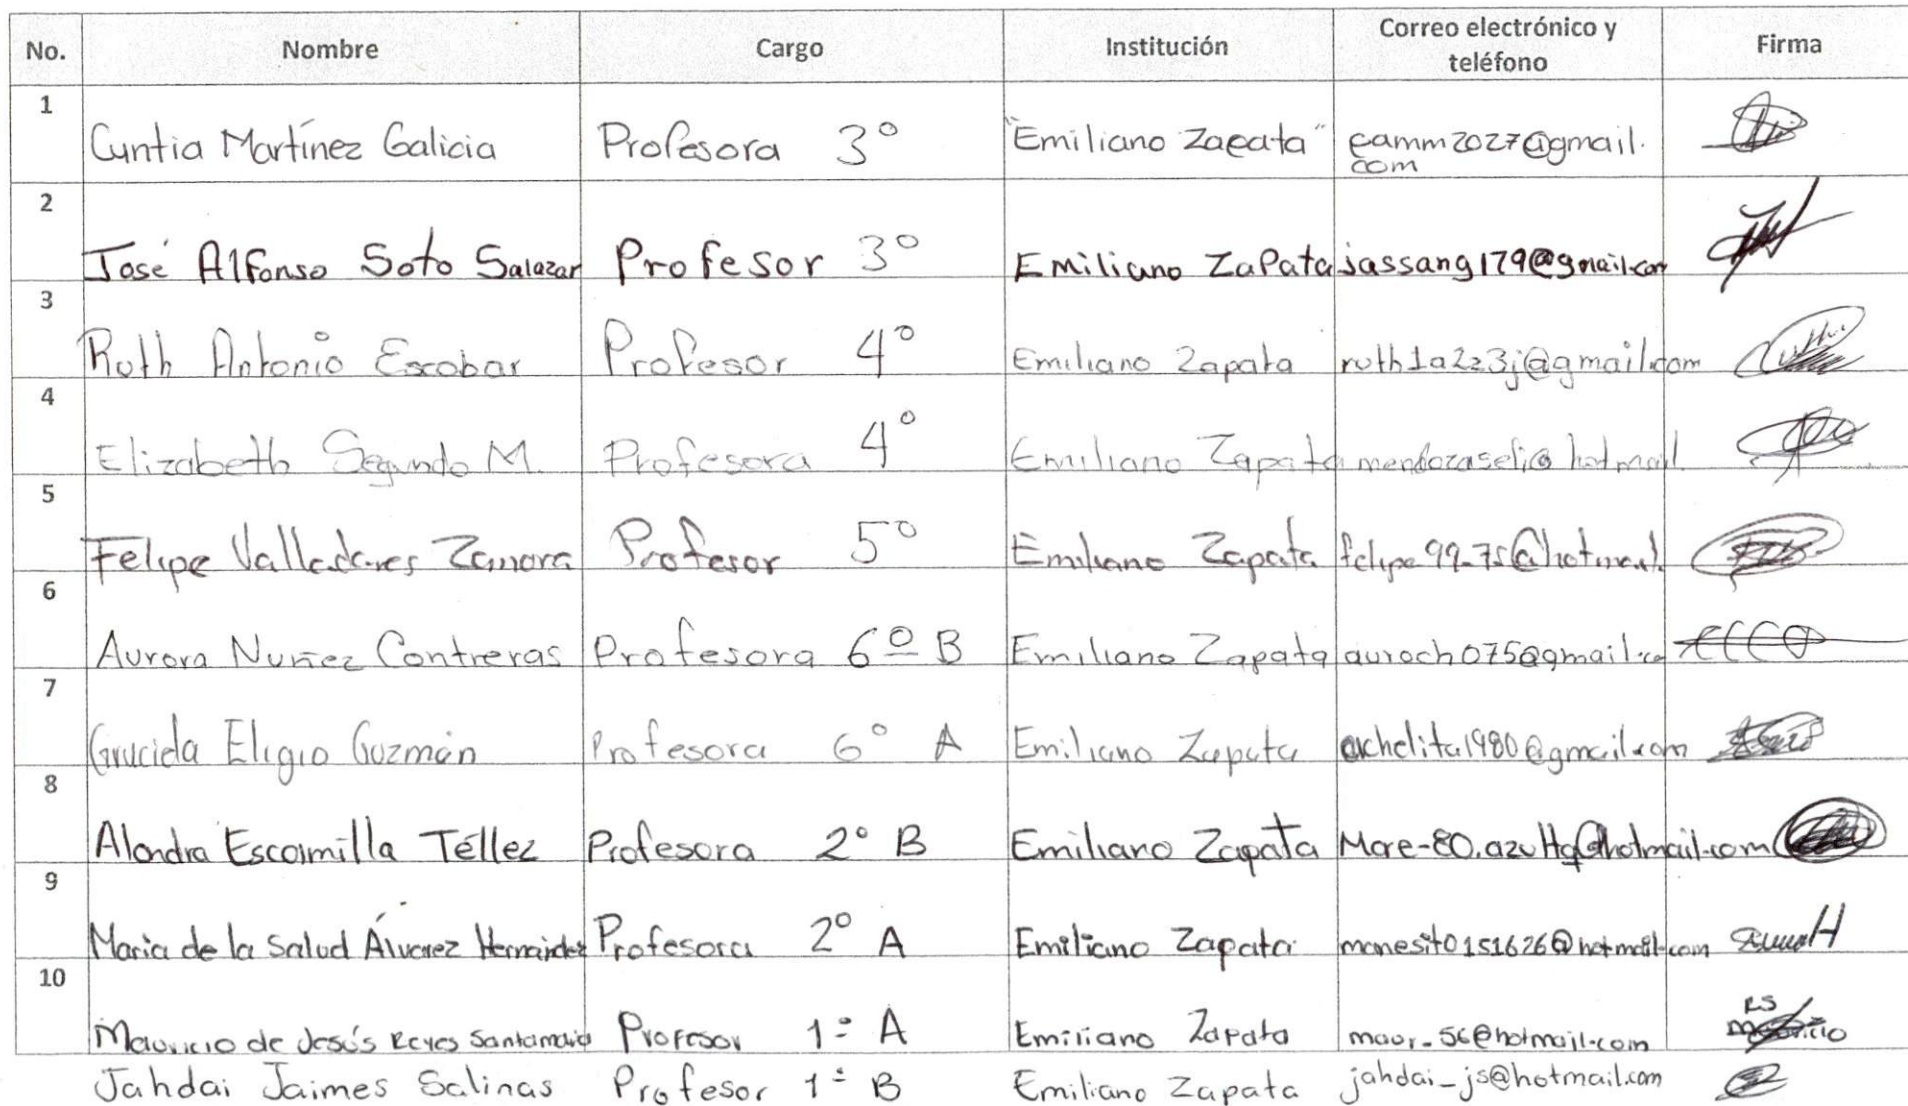 No. Nombre Cargo Institución Correo electrónico y teléfono Firma
1 Cyntia Martínez Galicia Profesora 3° "Emiliano Zapata" eamm2027@gmail.
com
2 José Alfonso Soto Salazar Profesor 3° Emiliano ZaPata jassang179@gmail.com
3 Ruth Antonio Escobar Profesor 4° Emiliano Zapata ruth1a2z3j@gmail.com
4 Elizabeth Segundo M. Profesora 4° Emiliano Zapata mendozaseli@hotmail
5 Felipe Valladares Zamora Profesor 5° Emiliano Zapata felipe99-75@hotmail.
6 Aurora Nuñez Contreras Profesora 6º B Emiliano Zapata auroch075@gmail.co
7 Graciela Eligio Guzmán Profesora 6° A Emiliano Zapata achelita1980@gmail.com
8 Alondra Escamilla Téllez Profesora 2° B Emiliano Zapata
9 Maria de la Salud Álvarez Hernández Profesora 2° A Emiliano Zapata manesito151626@hotmail.com
10 Mauricio de Jesús Reyes Santamaria Profesor 1º A Emiliano Zapata maur_56@hotmail.com RS
Mauricio
Jahdai Jaimes Salinas Profesor 1º B Emiliano Zapata jahdai_js@hotmail.com